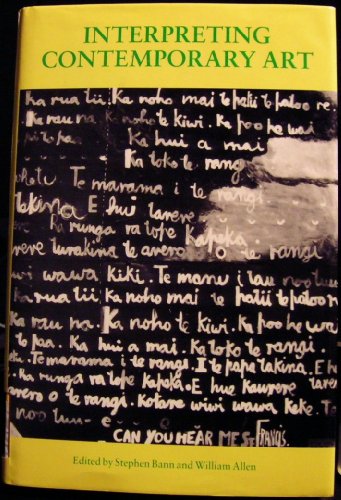 INTERPRETING
CONTEMPORARY ART
Ka rua tii. Ka noho mai te patii te patoo re.
Ka rau na Ka noho te kiwi. Ka poo he wai
pi to paa. Ka hui a mai
Ka toko te rangi
Te marama i te rangi
takina E hui tarere
Ka runga ra tofe Kapeka
rere turakina te averoo o te rangi
wi wawa kiki. Te manu i tau noo
Ka rua tii Ka noho mai te patii te patoo
Ka rau na. Ka noho te kiwi. Ka poo he wa
to paa. Ka hui a mai. Ka toko te rangi.
Te marama i te rangi. I te papa takina. E
Ka runga ra tofe Kapeka. E hue Kaurere tarere
avero o te rangi. Kotare wiwi wawa keke. Te
noo
CAN YOU HEAR ME St FRANCIS.
Edited by Stephen Bann and William Allen